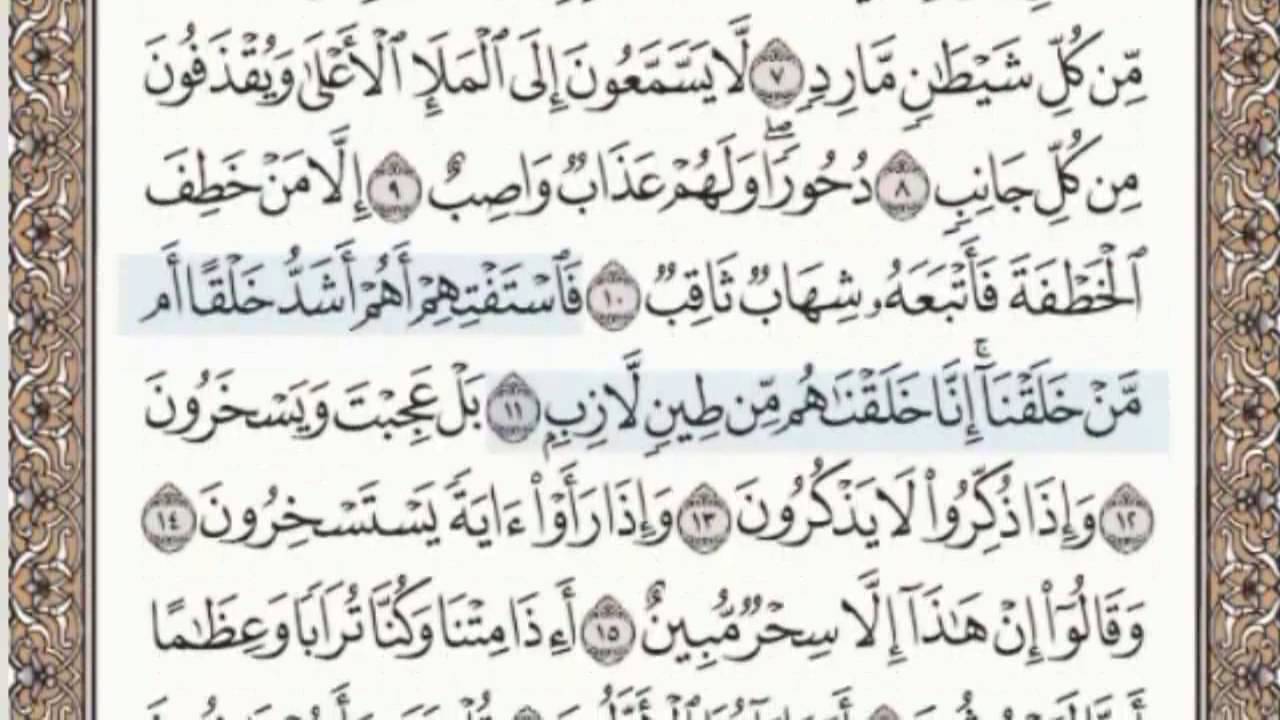 مِّن كُلِّ شَيْطَٰنٍ مَّارِدٍ ٧ لَّا يَسَّمَّعُونَ إِلَى ٱلْمَلَإِ ٱلْأَعْلَىٰ وَيُقْذَفُونَ
مِن كُلِّ جَانِبٍ ٨ دُحُورًا ۖ وَلَهُمْ عَذَابٌ وَاصِبٌ ٩ إِلَّا مَنْ خَطِفَ
ٱلْخَطْفَةَ فَأَتْبَعَهُۥ شِهَابٌ ثَاقِبٌ ١٠ فَٱسْتَفْتِهِمْ أَهُمْ أَشَدُّ خَلْقًا أَم
مَّنْ خَلَقْنَآ ۚ إِنَّا خَلَقْنَٰهُم مِّن طِينٍ لَّازِبٍۭ ١١ بَلْ عَجِبْتَ وَيَسْخَرُونَ
١٢ وَإِذَا ذُكِّرُوا۟ لَا يَذْكُرُونَ ١٣ وَإِذَا رَأَوْا۟ ءَايَةً يَسْتَسْخِرُونَ ١٤
وَقَالُوٓا۟ إِنْ هَٰذَآ إِلَّا سِحْرٌ مُّبِينٌ ١٥ أَءِذَا مِتْنَا وَكُنَّا تُرَابًا وَعِظَٰمًا